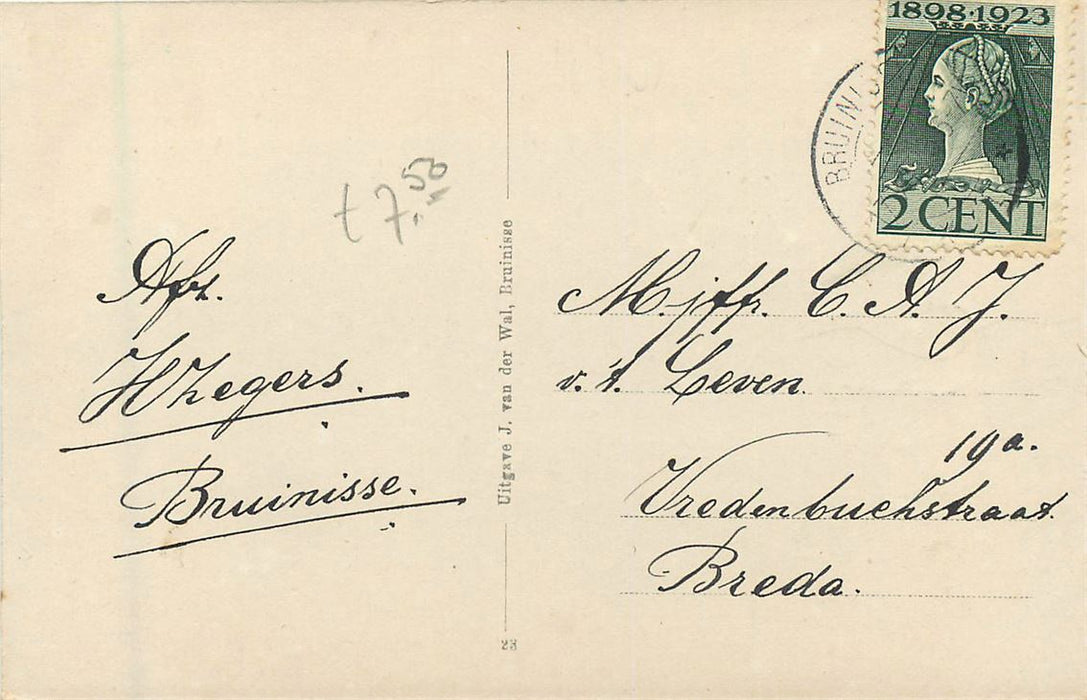 1898·1923
2 CENT
BRUINIS
t 7.50
Afz.
HZegers.
Bruinisse.
Uitgave J. van der Wal, Bruinisse
23
Mejffr. C. A. J.
v. t. Leven
19a.
Vredenbuchstraat.
Breda.